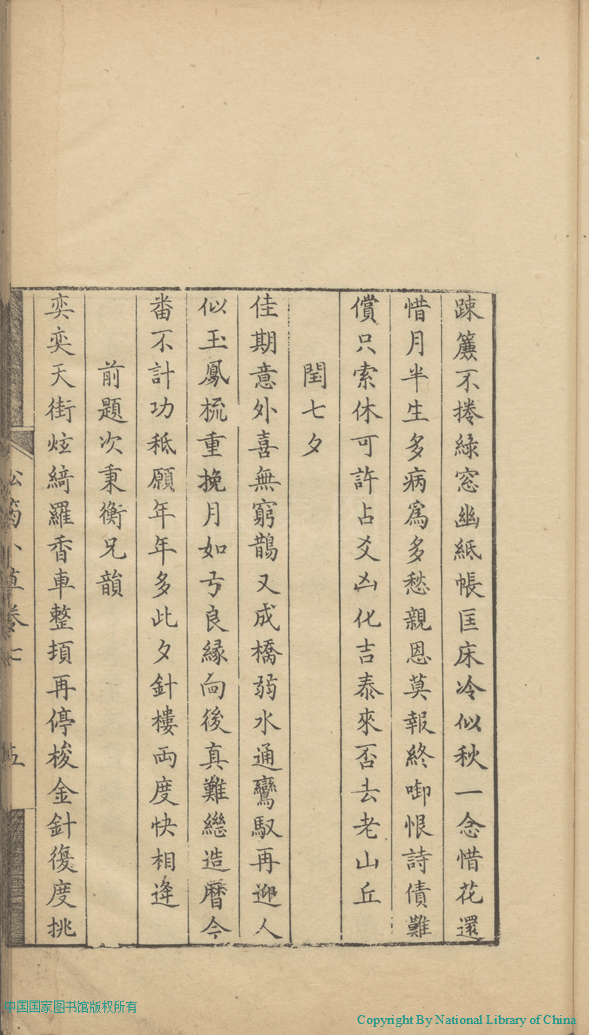 踈簾不捲綠窓幽紙帳匡床冷似秋一念惜花還
惜月半生多病爲多愁親恩莫報終啣恨詩債難
償只索休可許占爻凶化吉泰來否去老山丘
閏七夕
佳期意外喜無窮鵲又成橋弱水通鸞馭再迎人
似玉鳳梳重挽月如弓良緣向後真難繼造曆今
番不計功秪願年年多此夕針樓兩度快相逢
前題次秉衡兄韻
奕奕天街炫綺羅香車整頓再停梭金針復度挑
小草卷七
中国国家图书馆版权所有
Copyright By National Library of China